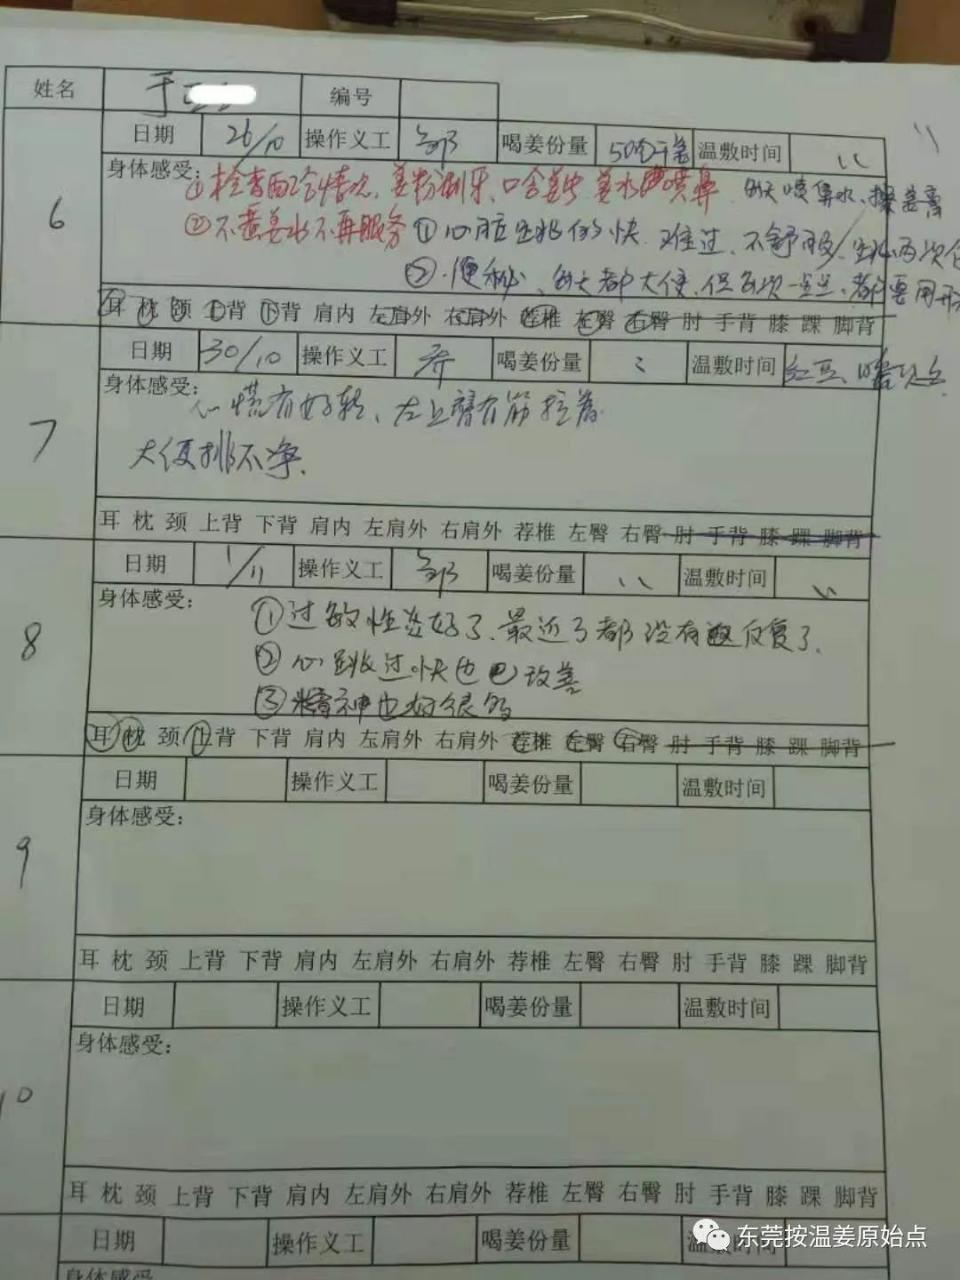 姓名 于 编号
6 日期 26/10 操作义工 郭 喝姜份量 50克干姜 温敷时间 〃
身体感受: ①检查配合情况, 姜粉刷牙, 口含姜, 姜水喷鼻 每天喷鼻水、擦姜膏
②不煮姜水不再服务 ①心脏跳的快, 难过, 不舒服
②便秘、每天都大便, 但每次一点点, 都要用
耳 枕 颈 上背 下背 肩内 左肩外 右肩外 荐椎 左臀 右臀 肘 手背 膝 踝 脚背
7 日期 30/10 操作义工 喝姜份量 温敷时间 红豆、
身体感受: 心慌有好转、左上臂有筋拉着
大便排不净.
耳 枕 颈 上背 下背 肩内 左肩外 右肩外 荐椎 左臀 右臀 肘 手背 膝 踝 脚背
8 日期 1/11 操作义工 郭 喝姜份量 〃 温敷时间 〃
身体感受: ①过敏性炎好了, 最近了都没有反复了.
②心跳过快也已改善
③精神也好很多
耳 枕 颈 上背 下背 肩内 左肩外 右肩外 荐椎 左臀 右臀 肘 手背 膝 踝 脚背
9 日期 操作义工 喝姜份量 温敷时间
身体感受:
耳 枕 颈 上背 下背 肩内 左肩外 右肩外 荐椎 左臀 右臀 肘 手背 膝 踝 脚背
10 日期 操作义工 喝姜份量 温敷时间
身体感受:
耳 枕 颈 上背 下背 肩内 左肩外 右肩外 荐椎 左臀 右臀 肘 手背 膝 踝 脚背
日期 操作义工 喝姜份量 温敷时间
身体感受:
东莞按温姜原始点